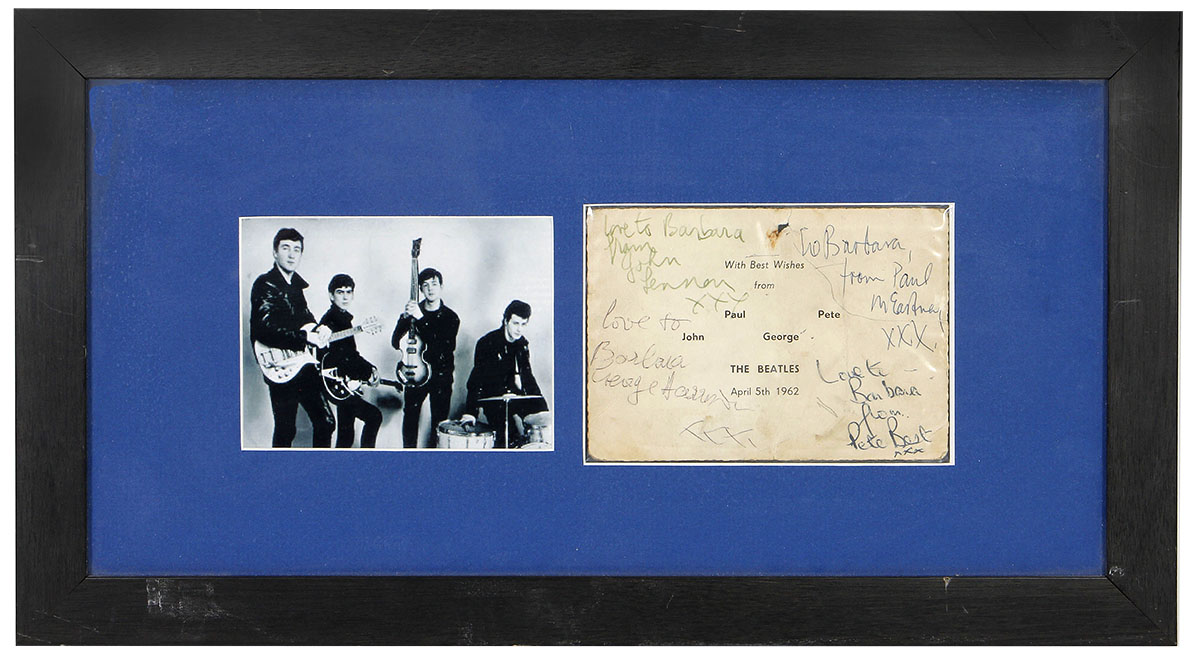 Love to Barbara
from
John
Lennon
XXX
To Barbara,
from Paul
McCartney
XXX!
With Best Wishes
from
Paul Pete
John George
THE BEATLES
April 5th 1962
love to
Barbara
George Harrison
XXX.
Love to
Barbara
from
Pete Best
xxx